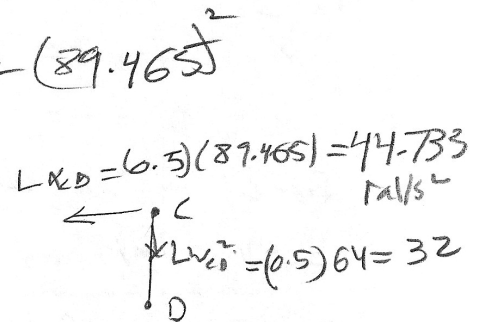 -(89.465)²
LαCD=(0.5)(89.465)=44.733
rad/s²
C
LωCD²=(0.5)64=32
D